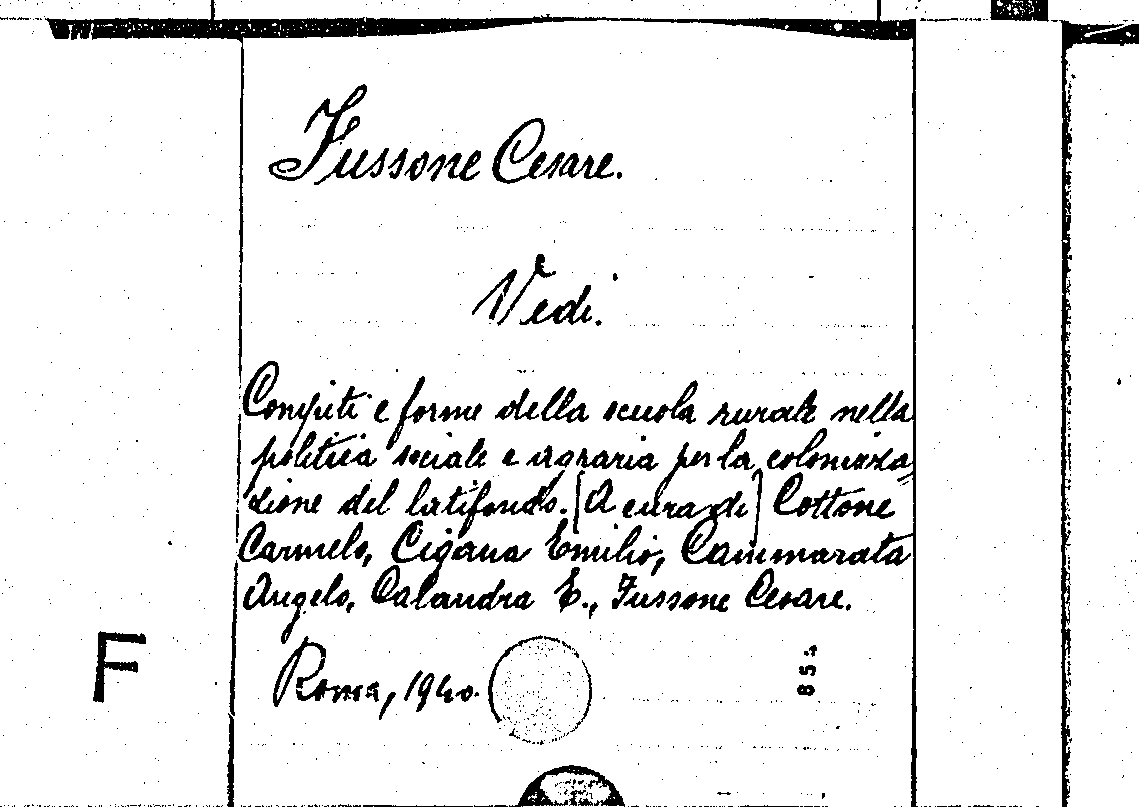 Fussone Cesare.
Vedi.
Compiti e forme della scuola rurale nella
politica sociale e agraria per la colonizza
zione del latifondo. [A cura di] Cottone
Carmelo, Cigana Emilio, Cammarata
Angelo, Calandra E., Fussone Cesare.
F
Roma, 1940.
854